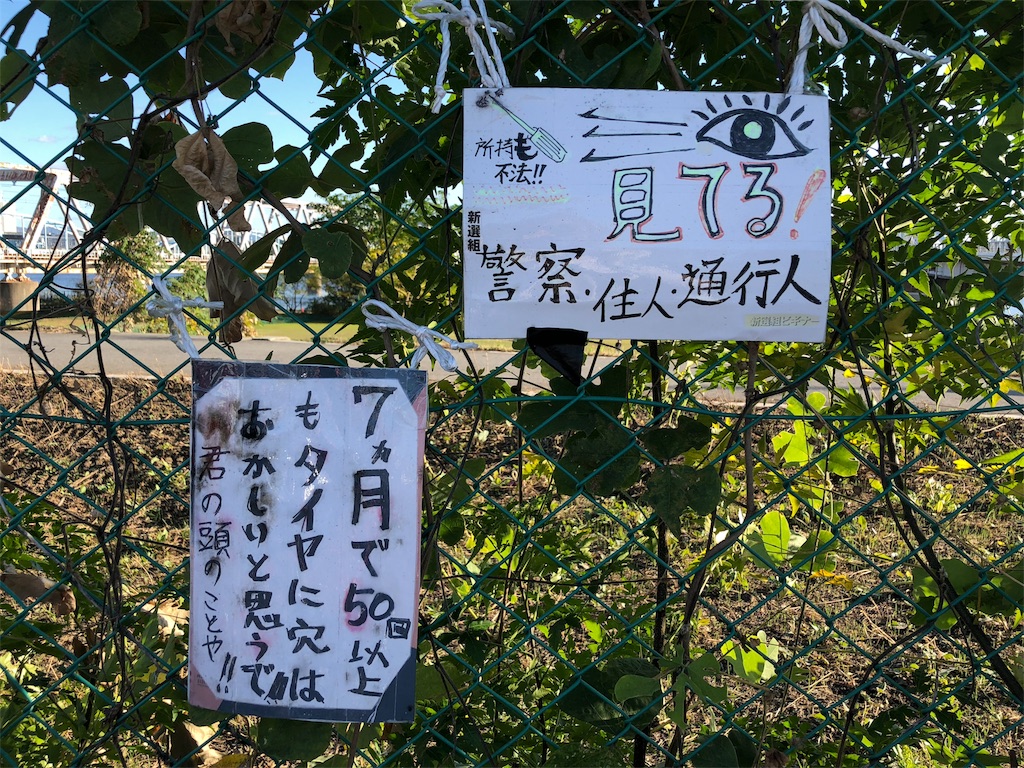 所持も
不法!!
見てる!
新選組
警察・住人・通行人
新選組ビギナー
7ヵ月で50回以上
もタイヤに穴は
おかしいと思うで!!
君の頭のことや!!